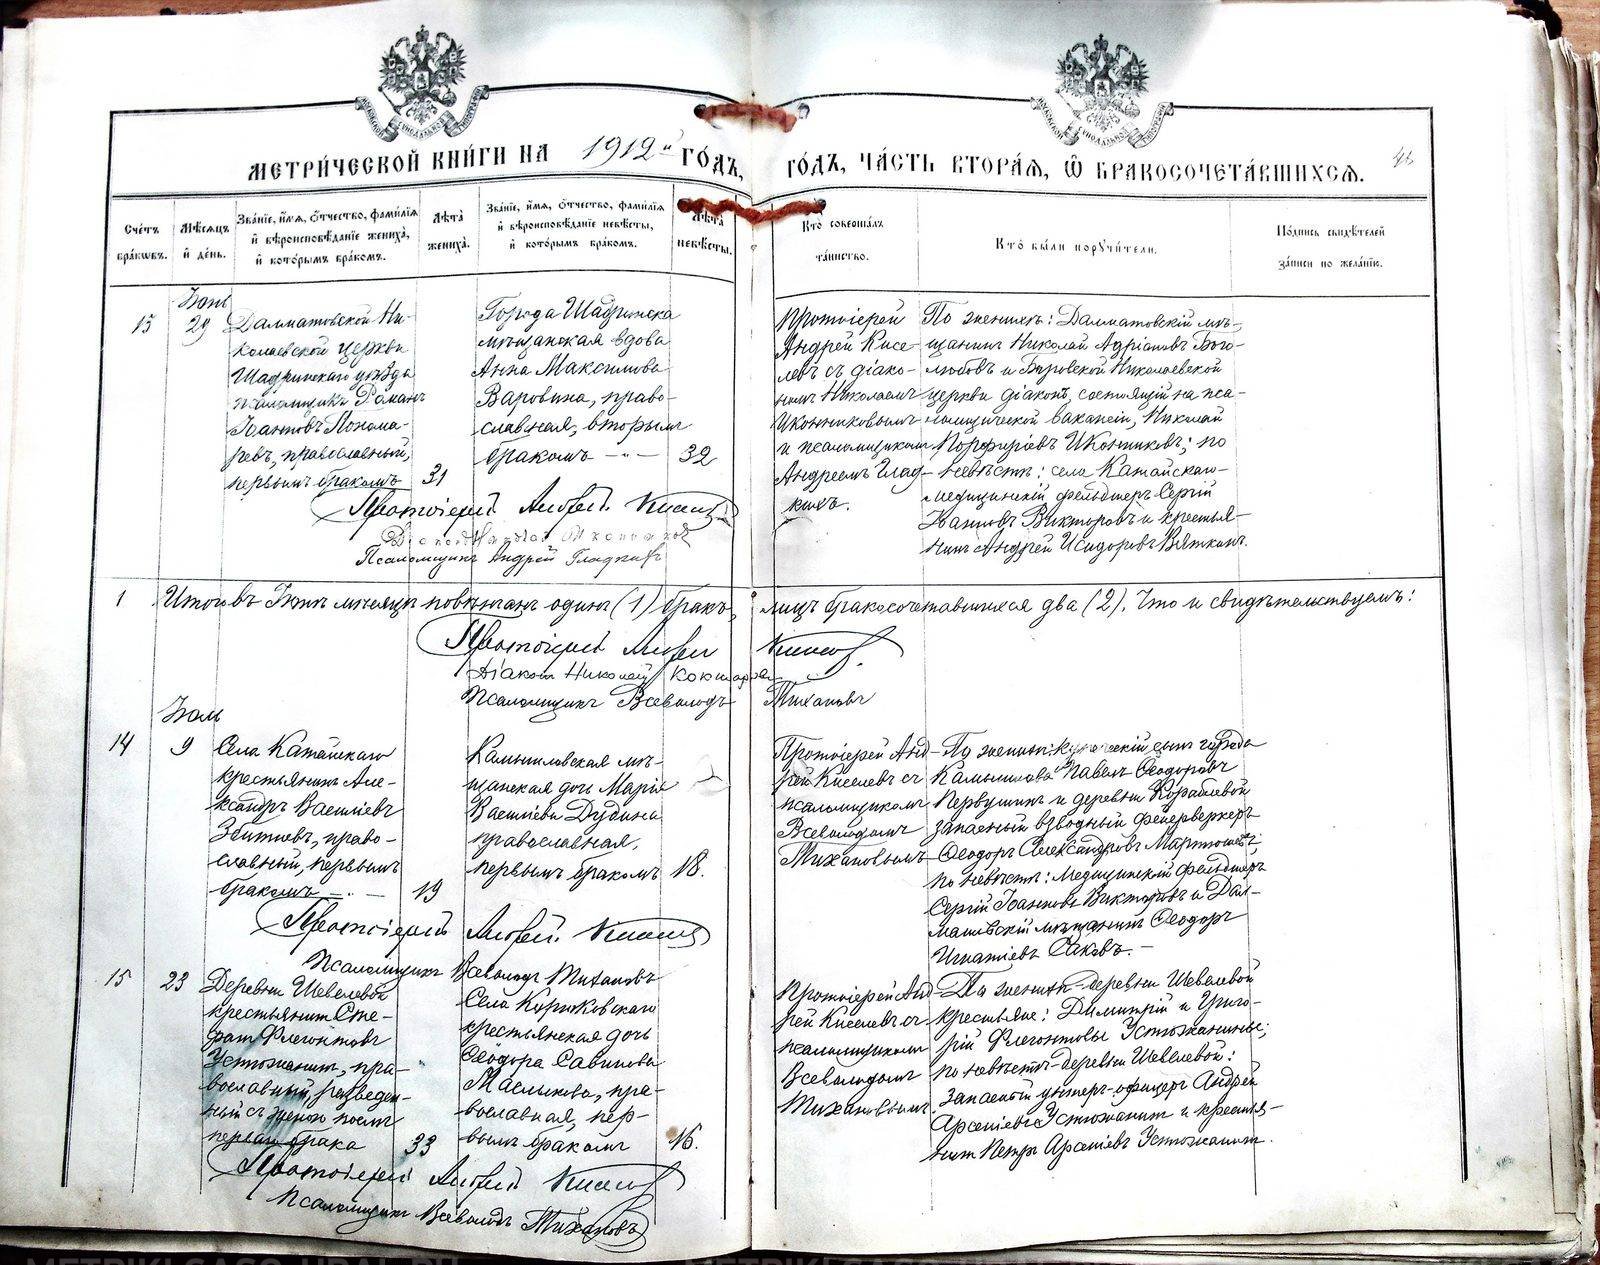 МЕТРИ́ЧЕСКОЙ КНИ́ГИ НА 1912й ГО́ДЪ,
ГО́ДЪ, ЧА́СТЬ ВТОРА́Я, Ѽ БРАКОСОЧЕТА́ВШИХСЯ.
Сче́тъ бра́кѡвъ.
Мѣ́сяцъ и҆ де́нь.
Зва́нїе, и҆́мя, ѻ҆́тчество, фами́лїя
и҆ вѣроисповѣ́данїе жениха̀,
и҆ кото́рымъ бра́комъ.
Лѣ́та жениха̀.
Зва́нїе, и҆́мя, ѻ҆́тчество, фами́лїя
и҆ вѣроисповѣ́данїе невѣ́сты,
и҆ кото́рымъ бра́комъ.
Лѣ́та невѣ́сты.
Кто̀ соверша́лъ
та́инство.
Кто̀ бы́ли поручи́тели.
По́дпись свидѣ́телей
за́писи по жела́нїю.
13
Іюнь
29
Далматовской Ни-
колаевской церкви
Шадринскаго уѣзда
псаломщикъ Романъ
Іоанновъ Понома-
ревъ, православный,
первымъ бракомъ
31
Города Шадринска
мѣщанская вдова
Анна Максимова
Варовина, право-
славная, вторымъ
бракомъ
32
Протоіерей
Андрей Кисе-
левъ съ діако-
номъ Николаемъ
Иконниковымъ
и псаломщикомъ
Андреемъ Глад-
кихъ.
По женихѣ: Далматовскій мѣ-
щанинъ Николай Адріановъ Бого-
любовъ и Николаевской
церкви діаконъ, состоящій на пса-
ломщической вакансіи, Николай
Порфиріевъ Иконниковъ; по
невѣстѣ: села Катайскаго
медицинскій фельдшеръ Сергій
Іоанновъ Викторовъ и крестья-
нинъ Андрей Исидоровъ Вяткинъ.
Протоіерей Андрей Киселевъ
Псаломщикъ Андрей Гладкихъ
1
Итого въ Іюнѣ мѣсяцѣ повѣнчанъ одинъ (1) бракъ, лицъ бракосочетавшихся два (2). Что и свидѣтельствуемъ:
Протоіерей Андрей Киселевъ.
Діаконъ Николай
Псаломщикъ Всеволодъ Тихановъ
Іюль
14
9
Села Катайскаго
крестьянинъ Але-
ксандръ Васильевъ
Збитневъ, право-
славный, первымъ
бракомъ
19
Камышловская мѣ-
щанская дочь Марія
Васильева Дубина
православная,
первымъ бракомъ
18.
Протоіерей Анд-
рей Киселевъ съ
псаломщикомъ
Всеволодомъ
Тихановымъ
По женихѣ: купеческій сынъ города
Камышлова Павелъ Ѳеодоровъ
Первушинъ и деревни Кораблевой
запасный взводный фейерверкеръ
Ѳеодоръ Александровъ Мартюшевъ;
по невѣстѣ: медицинскій фельдшеръ
Сергій Іоанновъ Викторовъ и Дал-
матовскій мѣщанинъ Ѳеодоръ
Игнатіевъ
Протоіерей Андрей Киселевъ
Псаломщикъ Всеволодъ Тихановъ
15
23
Деревни Шевелевой
крестьянинъ Сте-
фанъ Флегонтовъ
Устюжанинъ, пра-
вославный, разведен-
ный съ женою послѣ
перваго брака
33
Села Корюковскаго
крестьянская дочь
Ѳеодора Савинова
пра-
вославная, пер-
вымъ бракомъ
16.
Протоіерей Анд-
рей Киселевъ съ
псаломщикомъ
Всеволодомъ
Тихановымъ.
По женихѣ деревни Шевелевой
крестьяне: Димитрій и Григо-
рій Флегонтовы Устюжанины;
по невѣстѣ деревни Шевелевой:
Запасный унтеръ-офицеръ Андрей
Арсеніевъ Устюжанинъ и крестья-
нинъ Петръ Арсеніевъ Устюжанинъ.
Протоіерей Андрей Киселевъ
Псаломщикъ Всеволодъ Тихановъ